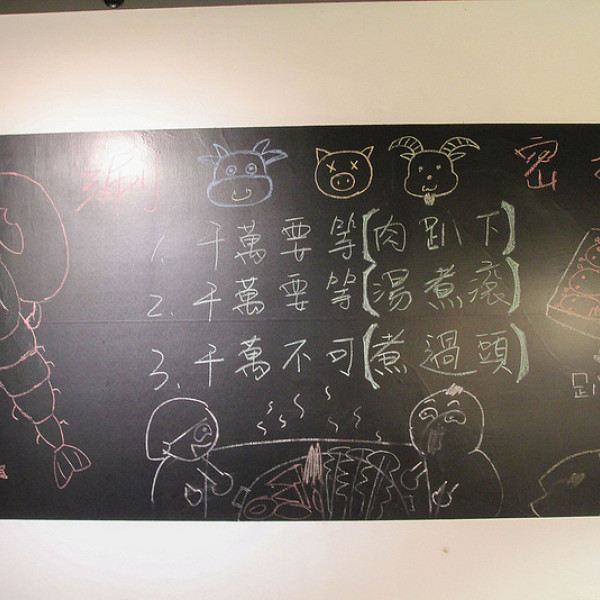 涮 密
1. 千萬要等【肉趴下】
2. 千萬要等【湯煮滾】
3. 千萬不可【煮過頭】
趴